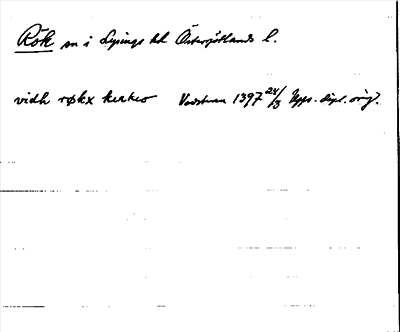 Rök sn i Lysings hd Östergötlands l.
vidh røkx kirkio Vadstena 1397 24/3 Upps. dipl. orig.